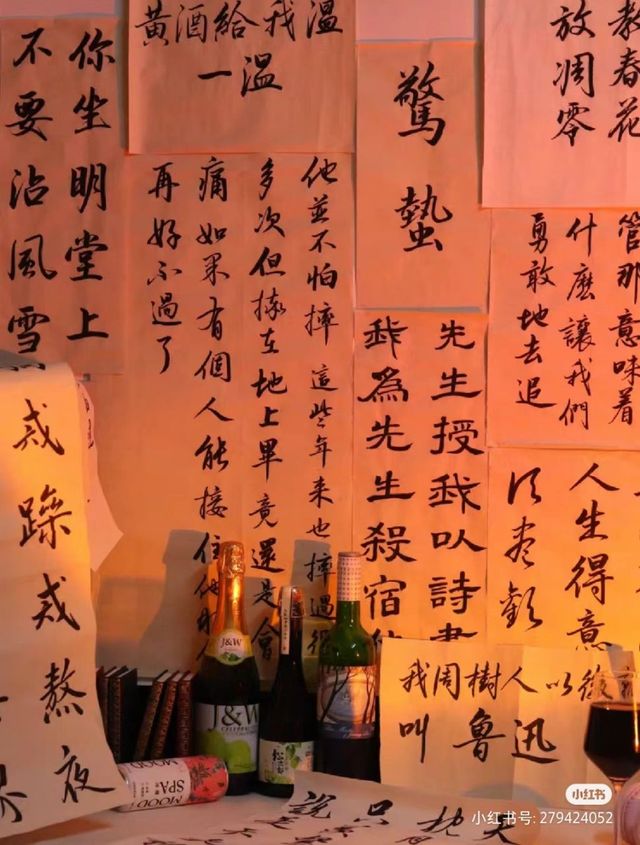 你坐明堂上
不要沾風雪
黄酒給我温
一温
驚蟄
教春花
放凋零
他並不怕摔 這些年来也摔過很
多次但摔在地上畢竟還是會
痛如果有個人能接住他
再好不過了
管那意味着
什麽讓我們
勇敢地去追
先生授我以詩書
我為先生殺宿
人生得意
須盡歡
戒躁戒熬夜
我周樹人以後
叫魯迅
J&W
J&W
MOOD
SPA
說只
小红书
小红书号: 279424052